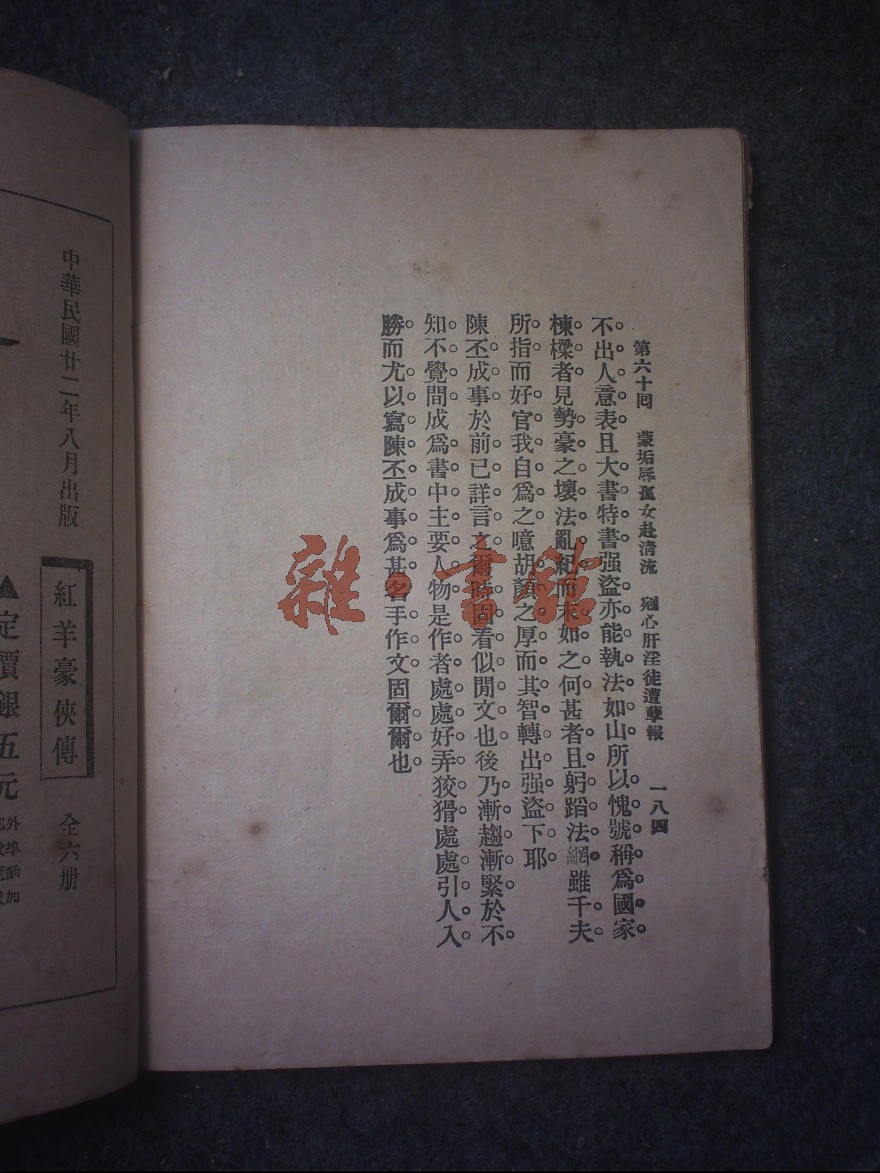 第六十回　蒙垢辱孤女赴清流　剜心肝淫徒遭孽報　一八四
不出人意表且大書特書强盜亦能執法如山所以愧號稱爲國家
棟樑者見勢豪之壞法亂紀而未如之何甚者且躬蹈法網雖千夫
所指而好官我自爲之噫胡顏之厚而其智轉出强盜下耶
陳丕成事於前已詳言之爾時固看似閒文也後乃漸趨漸緊於不
知不覺間成爲書中主要人物是作者處處好弄狡猾處處引人入
勝而尤以寫陳丕成事爲甚名手作文固爾爾也
雜·書館
▲定價銀五元
紅羊豪俠傳　全六册
中華民國廿二年八月出版